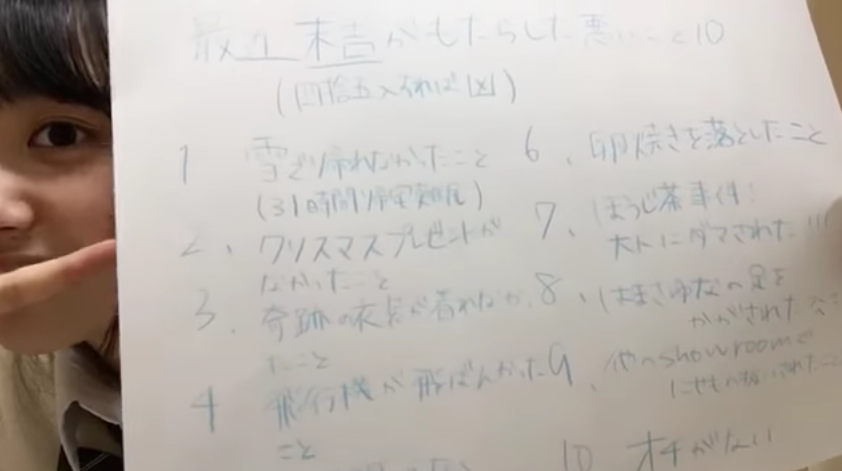 最近 末吉がもたらした悪いこと10
(四捨五入すれば凶)
1 雪で帰れなかったこと
(31時間帰宅難民)
2、クリスマスプレゼントが
なかったこと
3. 奇跡の衣装が着れなかっ
たこと
4 飛行機が飛ばんかった
こと
6、卵焼きを落としたこと
7、ほうじ茶事件!
大人にダマされた!!!
8、はまさゆなの足を
かがされた
9、他のshowroomで
にせもの扱いされたこ
10 オチがない